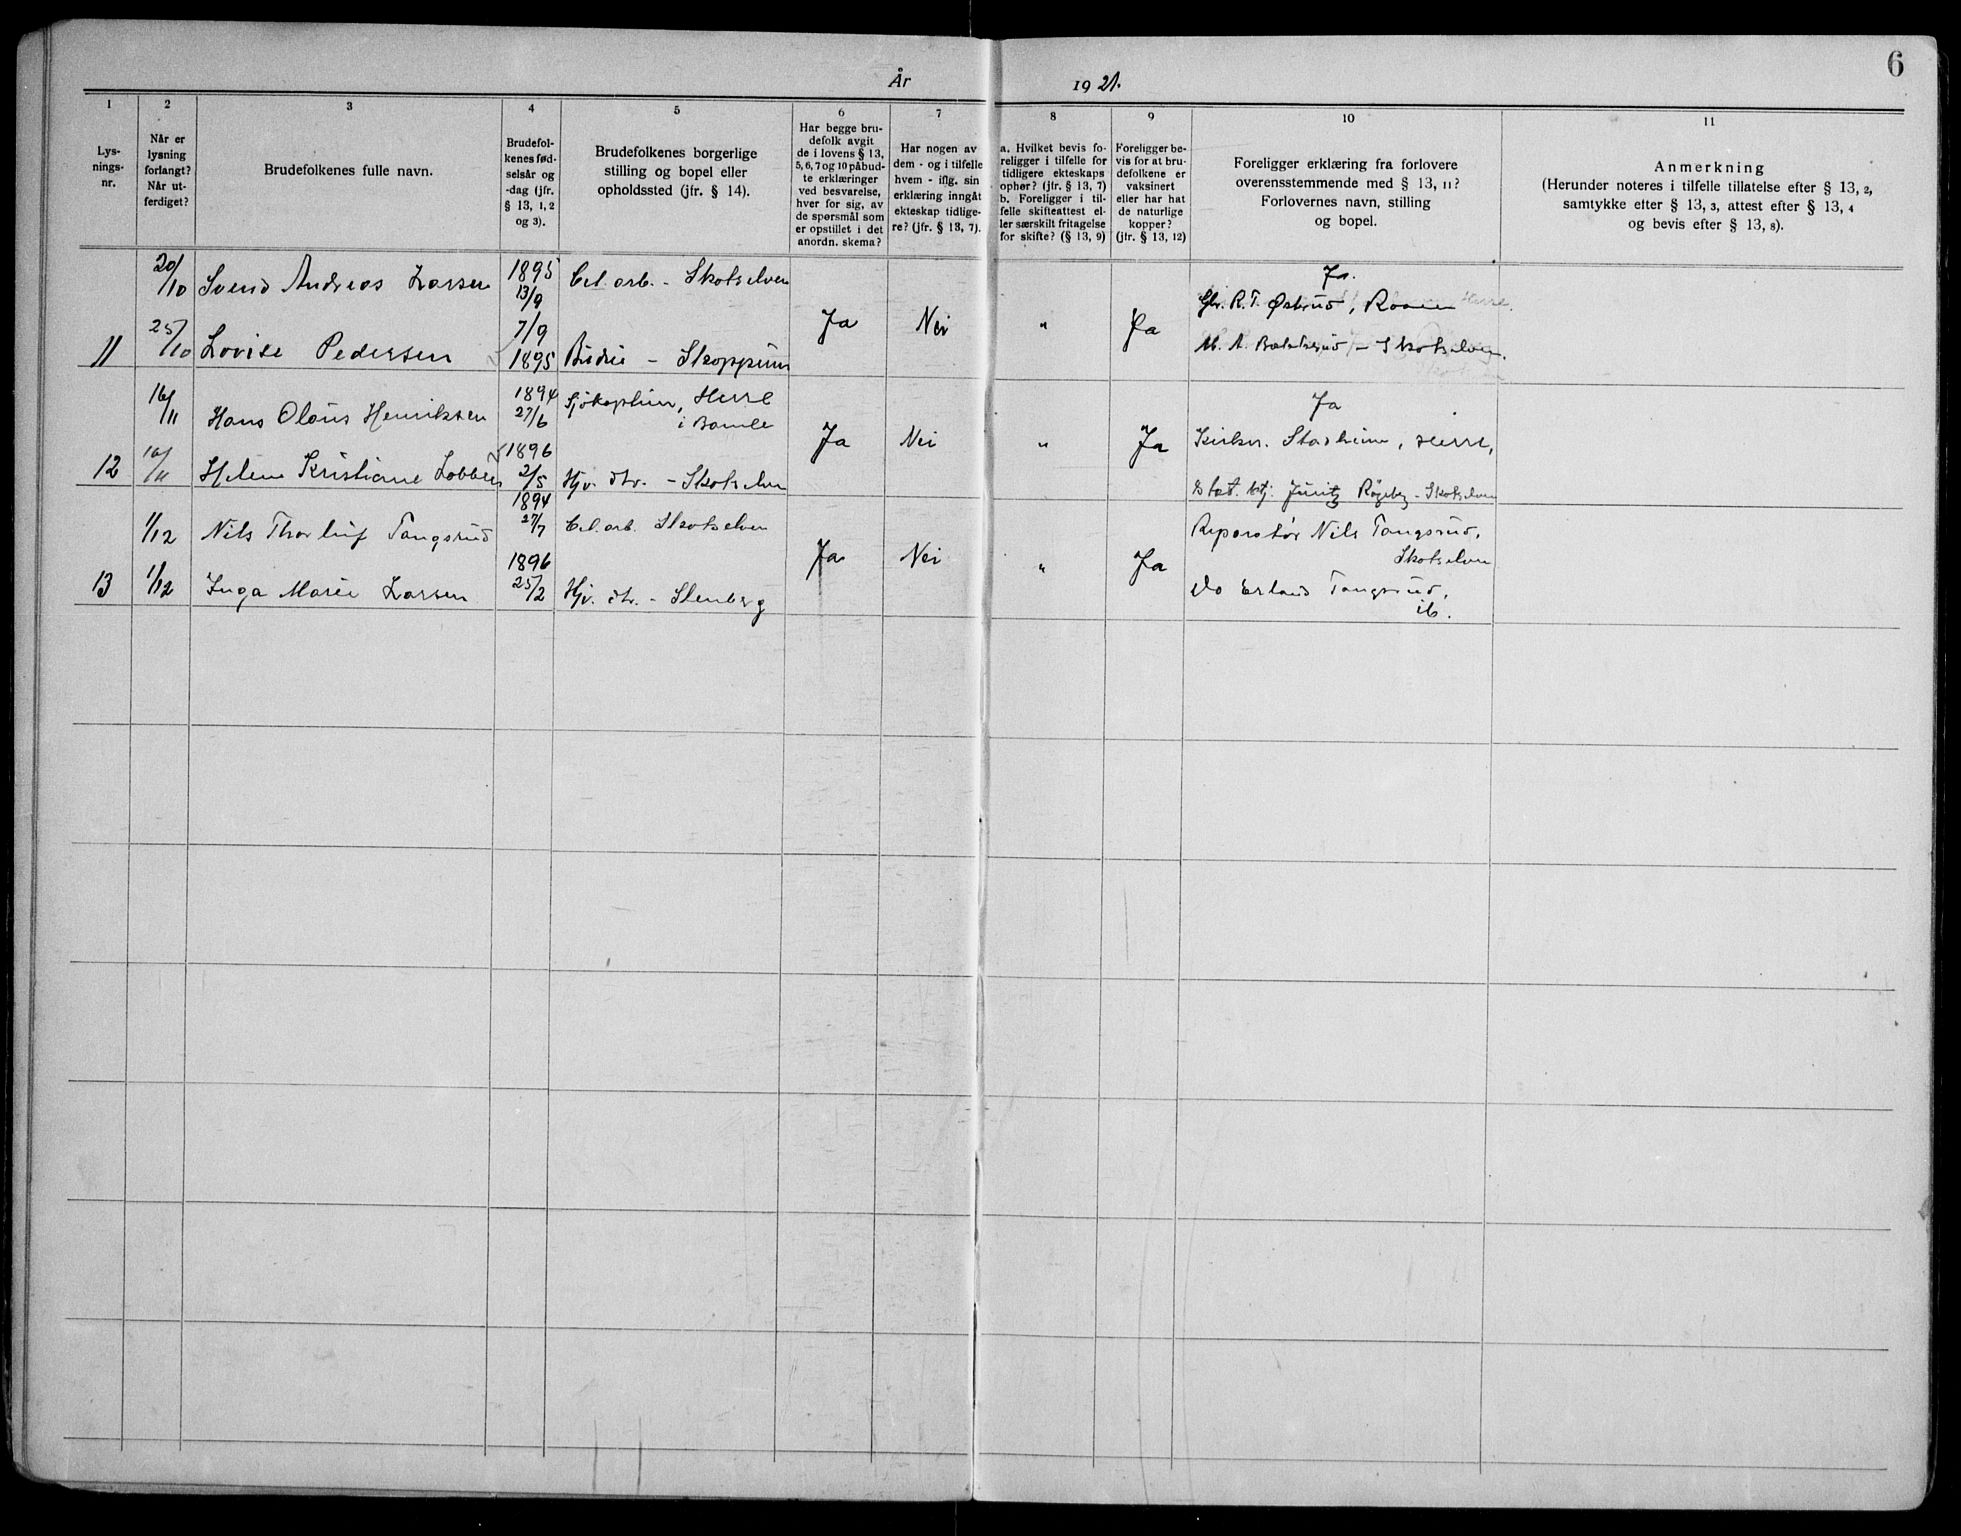 6
År 1921.
1 2 3 4 5 6 7 8 9 10 11
Lys-
nings-
nr.
Når er
lysning
forlangt?
Når ut-
ferdiget?
Brudefolkenes fulle navn.
Brudefol-
kenes fød-
selsår og
-dag (jfr.
§ 13, 1, 2
og 3).
Brudefolkenes borgerlige
stilling og bopel eller
opholdssted (jfr. § 14).
Har begge bru-
defolk avgit
de i lovens § 13,
5, 6, 7 og 10 påbud-
te erklæringer
ved besvarelse,
hver for sig, av
de spørsmål som
er opstillet i det
anordn. skema?
Har nogen av
dem - og i tilfelle
hvem - iflg. sin
erklæring inngåt
ekteskap tidlige-
re? (jfr. § 13, 7).
a. Hvilket bevis fo-
religger i tilfelle for
tidligere ekteskaps
ophør? (jfr. § 13, 7)
b. Foreligger i til-
felle skifteattest el-
ler særskilt fritagelse
for skifte? (§ 13, 9)
Foreligger be-
vis for at bru-
defolkene er
vaksinert
eller har hat
de naturlige
kopper?
(jfr. § 13, 12)
Foreligger erklæring fra forlovere
overensstemmende med § 13, 11?
Forlovernes navn, stilling
og bopel.
Anmerkning
(Herunder noteres i tilfelle tillatelse efter § 13, 2,
samtykke efter § 13, 3, attest efter § 13, 4
og bevis efter § 13, 8).
20/10 Svend Andreas Larsen 1895 13/9 Cel. arb. - Skotselven
Ja.
Gbr. R. T. Østrud,
11 25/10 Lovise Pedersen 7/9 1895 Budeie - Skoppum Ja Nei " Ja
M. A. - Skotselven.
16/11 Hans Olaus Henriksen 1894 27/6 Herre
i Bamle
Ja
Kirkes. Stadheim, Herre,
12 16/11 Helene Kristiane Lobben 1896 2/5 Hjv. dtr. - Skotselven Ja Nei " Ja
Stat. btj. Juritz Røgeberg - Skotselven
1/12 Nils Thorleif Tangsrud 1894 27/7 Cel. arb. Skotselven
Reparatør Nils Tangsrud,
Skotselven
13 1/12 Inga Marie Larsen 1896 25/2 Hjv. dtr. - Stenberg Ja Nei " Ja
Do Erland Tangsrud,
ib.